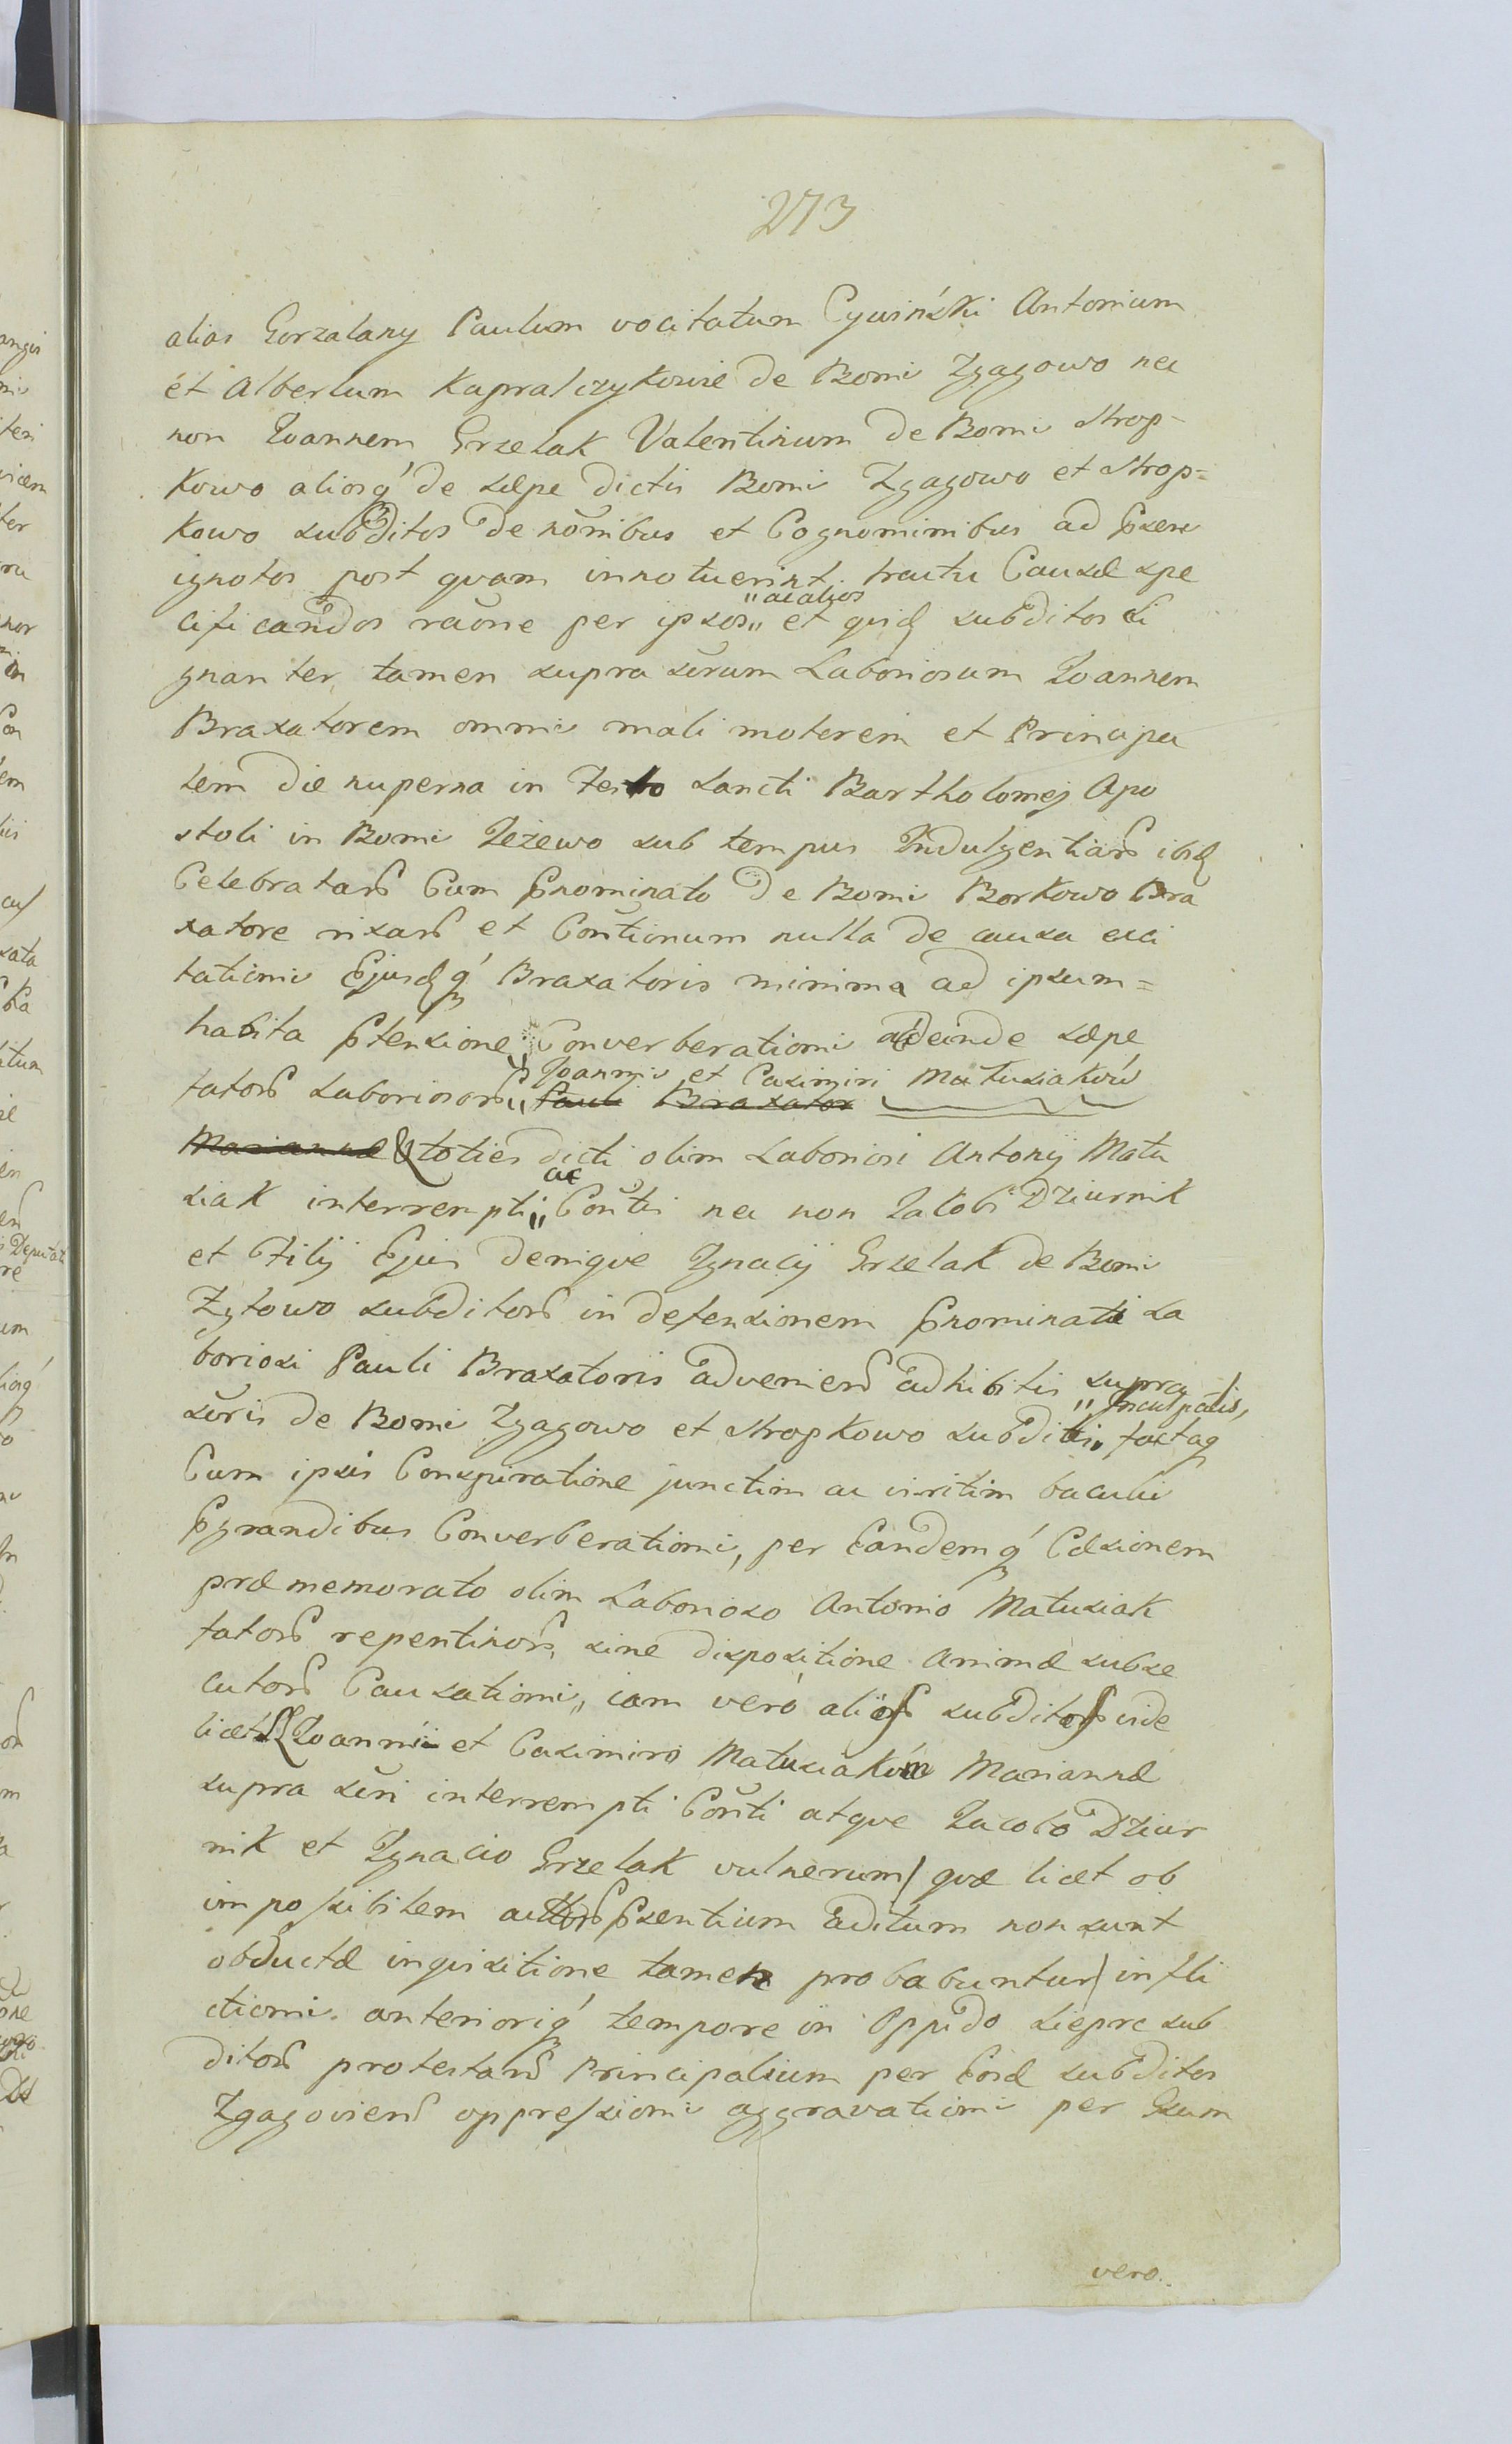 273
alias Gorzalany Paulum vocitatum Cywinski Antonium
et Albertum Kapralczykowie de Bonis Zgagowo nec
non Ioannem Grzelak Valentinum de Bonis Strop-
kowo aliosq́ de sæpe dictis Bonis Zgagowo et Strop=
kowo subditos de nōnibus et Cognominibus ad pr̄sens
ignotos post quam innotuerint tractu Causæ spe
„ac alios
cificandos raōne per ipsos„ et quid subditos Si
gnanter tamen supra sc̄rum Laboriosum Ioannem
Braxatorem omnis mali motorem et Principa
lem die nuperna in Festo Sancti Bartholomej Apo
stoli in Bonis Ieżewo sub tempus Indulgentiar ibid
Celebratar Cum prnominato de Bonis Borkowo Bra
xatore rixar et Contionum nulla de causa exci
tationis Ejusdq́ Braxatoris minima ad ipsum=
habita prtensione Converberationis abdeinde sæpe
Ioannis et Casimiri Matusiaków
fator Laborisor„ Pauli Braxator
Mariannæ toties dicti olim Laboriosi Antonij Matu
ac
siak interrempti„ Cōntis nec non Iacobi Dziurnik
et Filij Ejus denique Ignacij Grzelak de Bonis
Zytowo subditor in defensionem prnominati La
boriosi Pauli Braxatoris advenien adhibitis supra
„Inculpatis,
sc̄ris de Bonis Zgagowo et Stropkowo subditis„ factaq
Cum ipsis Conspiratione junctim ac viritim baculis
prgrandibus Converberationis, per Eandemq́ Cæsionem
præmemorato olim Laborioso Antonio Matusiak
fator repentinor, sine dispositione animæ subse
cutor Causationis, iam vero aliis subditis vide
licet Ioannis et Casimiro Matusiaków Mariannæ
supra sc̄ri interrempti Cōnti atque Iacobo Dziur
nik et Ignacio Grzelak vulnerum/ quæ licet ob
impossibilem actor prsentium aditum non sunt
obductæ inquisitione tamen probabuntur/ infli
ctionis anterioriq́ tempore in Oppido Sieprc sub
ditor protestan Principalium per Eosd subditos
Zgagovien oppressionis aggravationis per Ipsum
vero.